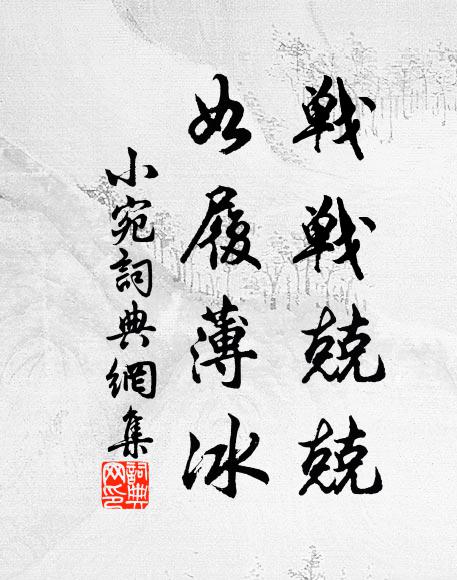 戦戦兢兢
如履薄冰
小宛詞典網集
詞典网印